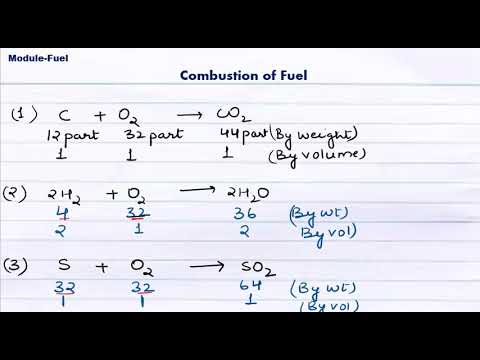 Module-Fuel
Combustion of Fuel
(1) C + O₂ → CO₂
12 part 32 part 44 part (By weight)
1 1 1 (By volume)
(2) 2H₂ + O₂ → 2H₂O
4 32 36 (By wt)
2 1 2 (By vol)
(3) S + O₂ → SO₂
32 32 64 (By wt)
1 1 1 (By vol)